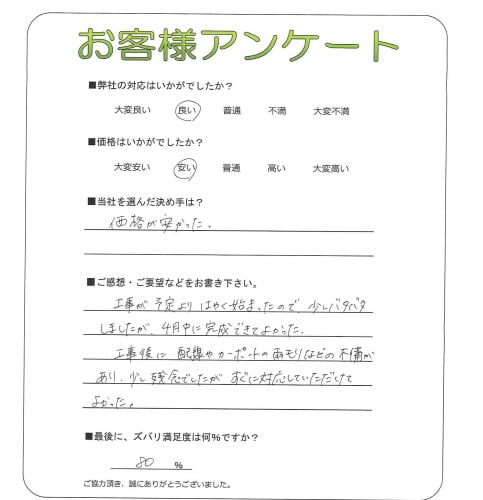 お客様アンケート
■弊社の対応はいかがでしたか？
大変良い 良い 普通 不満 大変不満
■価格はいかがでしたか？
大変安い 安い 普通 高い 大変高い
■当社を選んだ決め手は？
価格が安かった。
■ご感想・ご要望などをお書き下さい。
工事が予定よりはやく始まったので、少しバタバタ
しましたが、4月中に完成できてよかった。
工事後に配線やカーポートの雨モリなどの不備が
あり、少し残念でしたがすぐに対応していただけて
よかった。
■最後に、ズバリ満足度は何%ですか？
80 %
ご協力頂き、誠にありがとうございました。